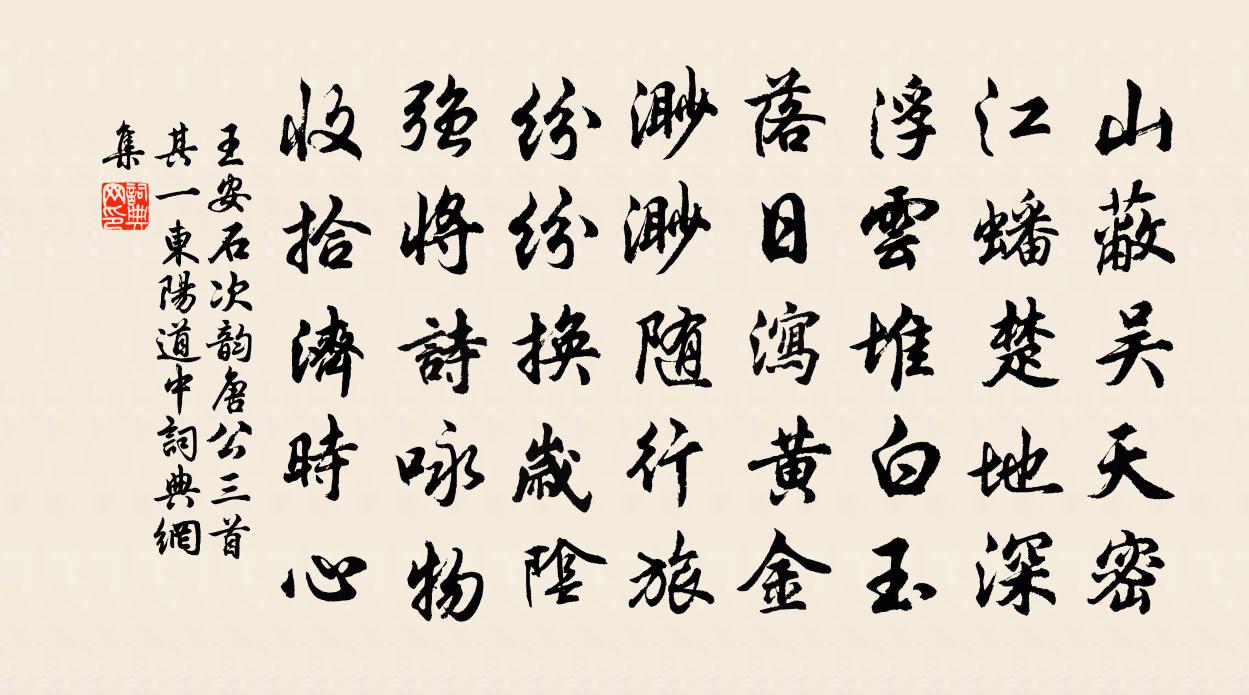 山蔽吴天密
江蟠楚地深
浮雲堆白玉
落日瀉黄金
渺渺随行旅
紛紛換歲陰
強將詩咏物
收拾濟時心
王安石次韵唐公三首
其一東陽道中詞典網
集
詞典
网印